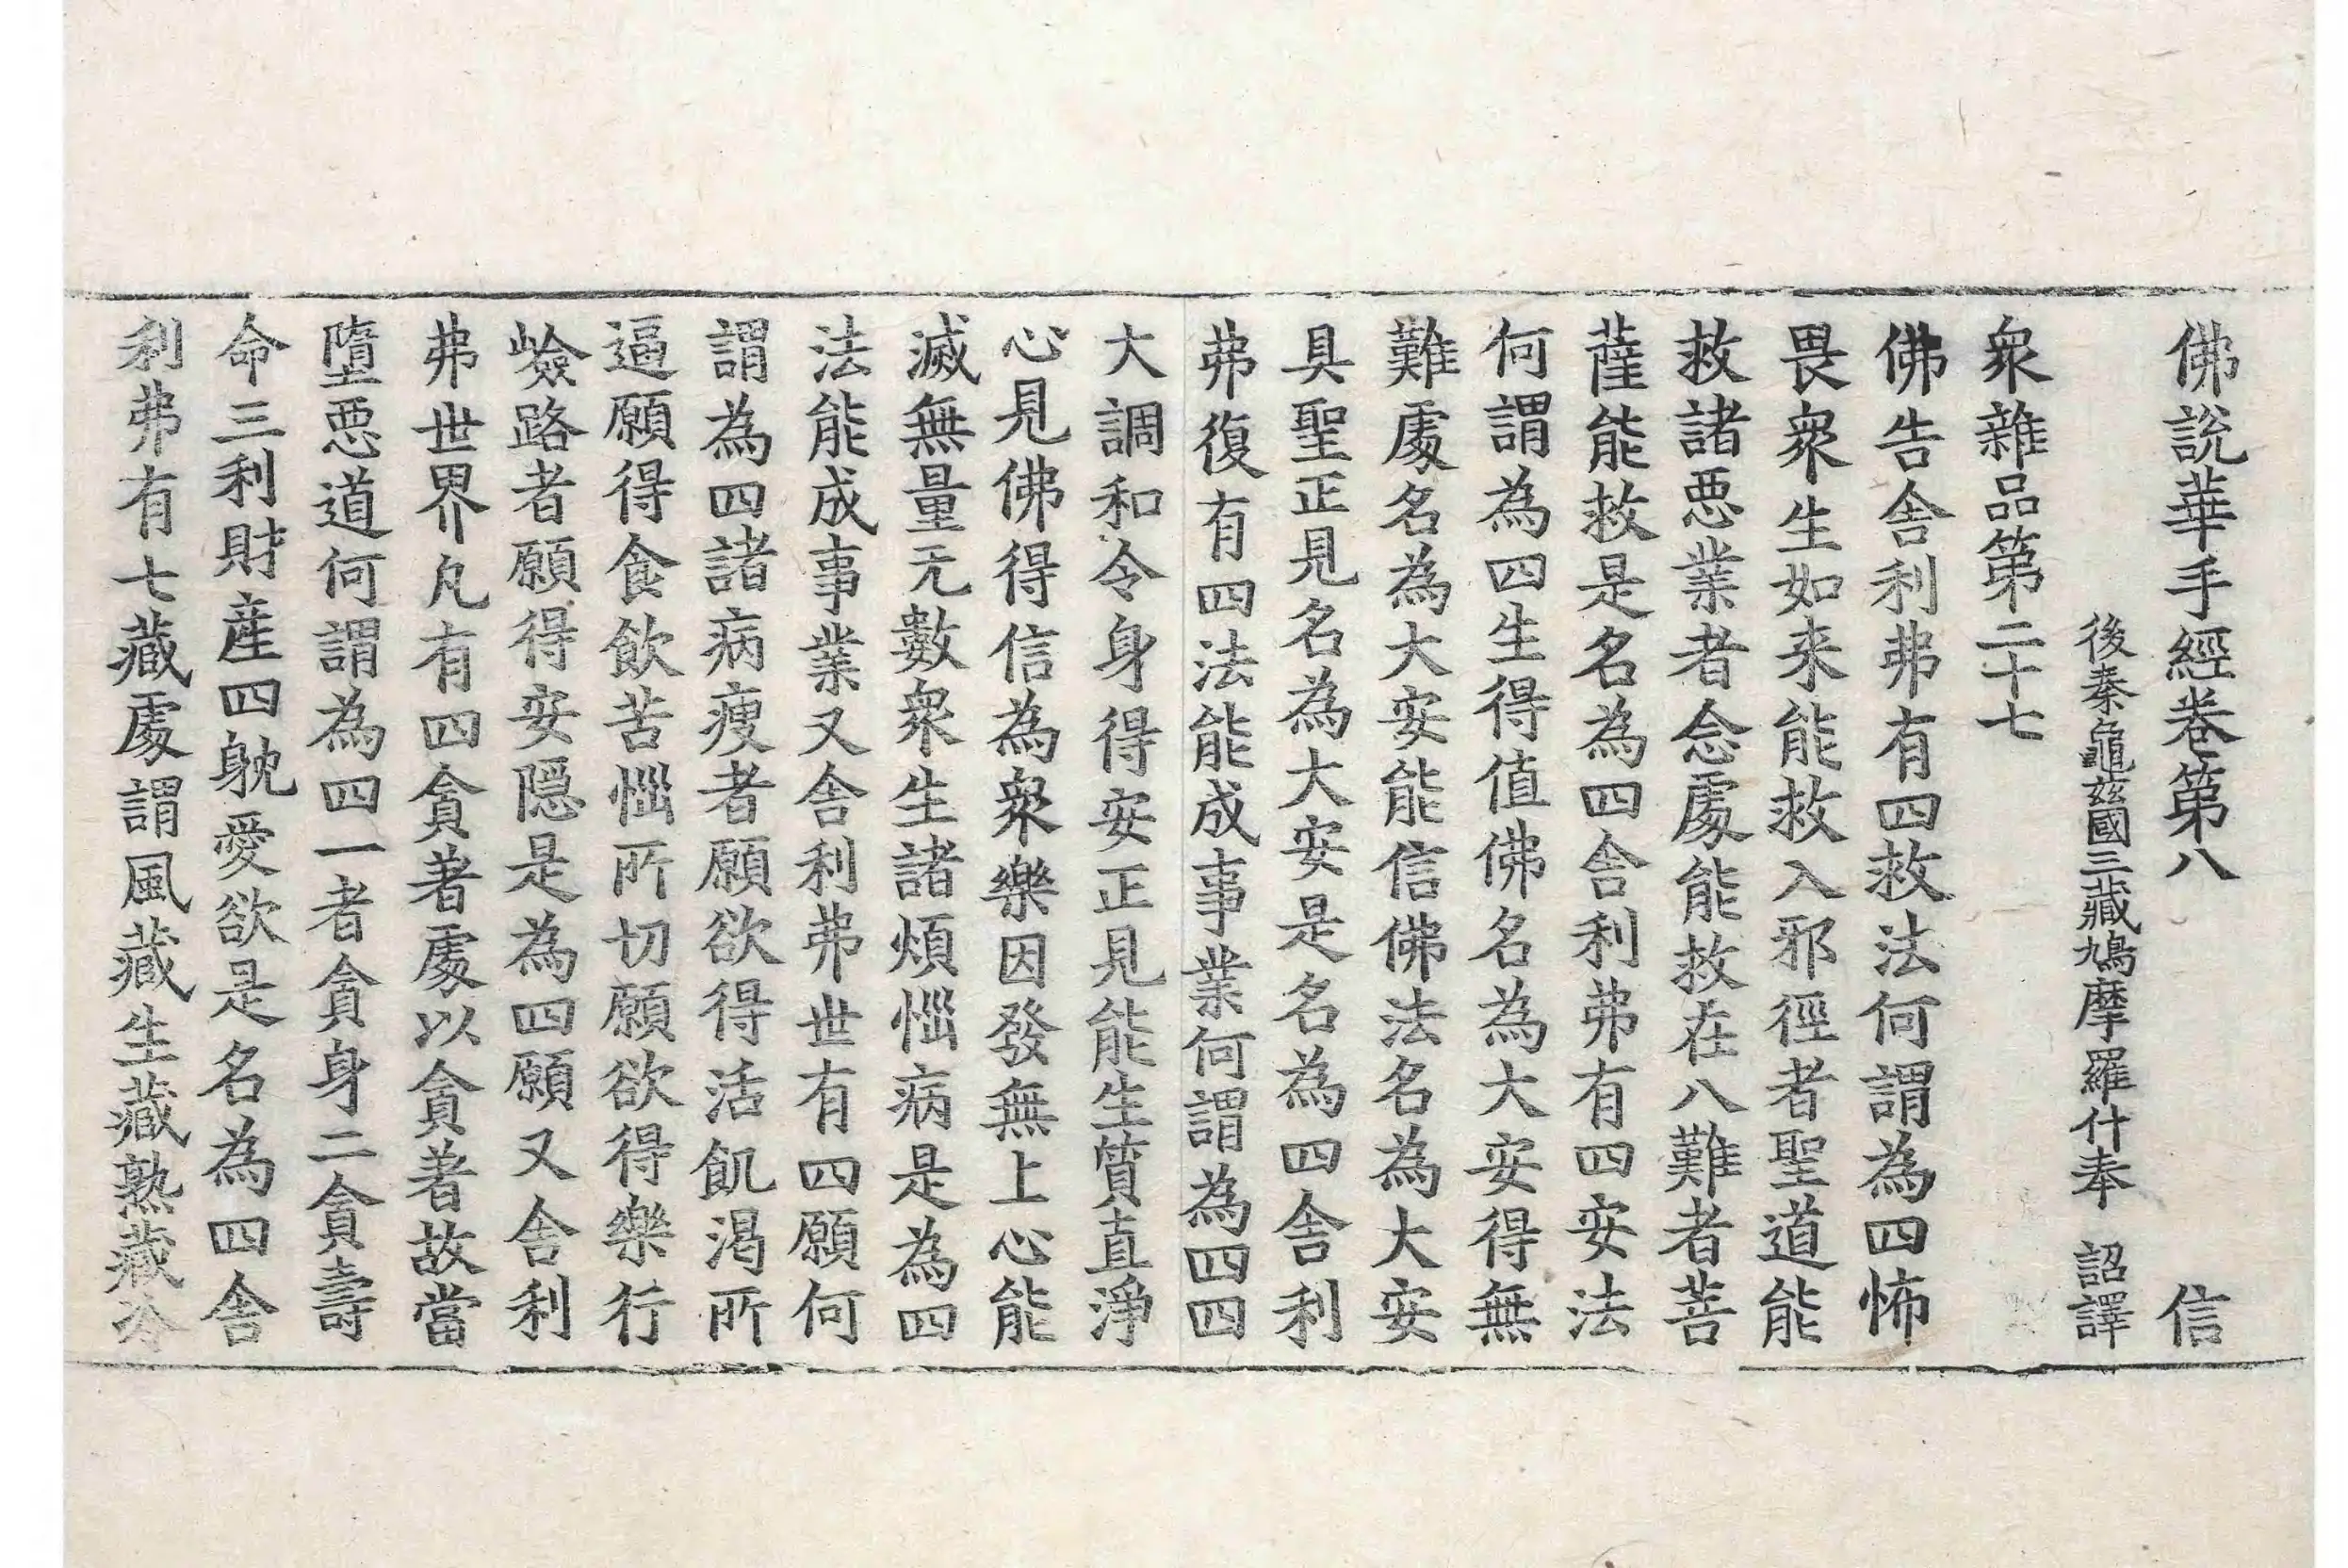 佛說華手經卷第八 信
後秦龜茲國三藏鳩摩羅什奉 詔譯
衆雜品第二十七
佛告舎利弗有四救法何謂為四怖
畏衆生如来能救入邪徑者聖道能
救諸悪業者念處能救在八難者菩
薩能救是名為四舎利弗有四安法
何謂為四生得值佛名為大安得無
難處名為大安能信佛法名為大安
具聖正見名為大安是名為四舎利
弗復有四法能成事業何謂為四四
大調和令身得安正見能生質直淨
心見佛得信為衆樂因發無上心能
滅無量无數衆生諸煩惱病是為四
法能成事業又舎利弗世有四願何
謂為四諸病瘦者願欲得活飢渴所
逼願得食飲苦惱所切願欲得樂行
嶮路者願得安隱是為四願又舎利
弗世界凡有四貪著處以貪著故當
墮悪道何謂為四一者貪身二貪壽
命三利財産四躭愛欲是名為四舎
利弗有七藏處謂風藏生藏熟藏冷